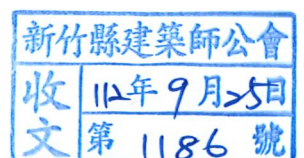 新竹縣建築師公會
收文
112年9月25日
第 1186 號